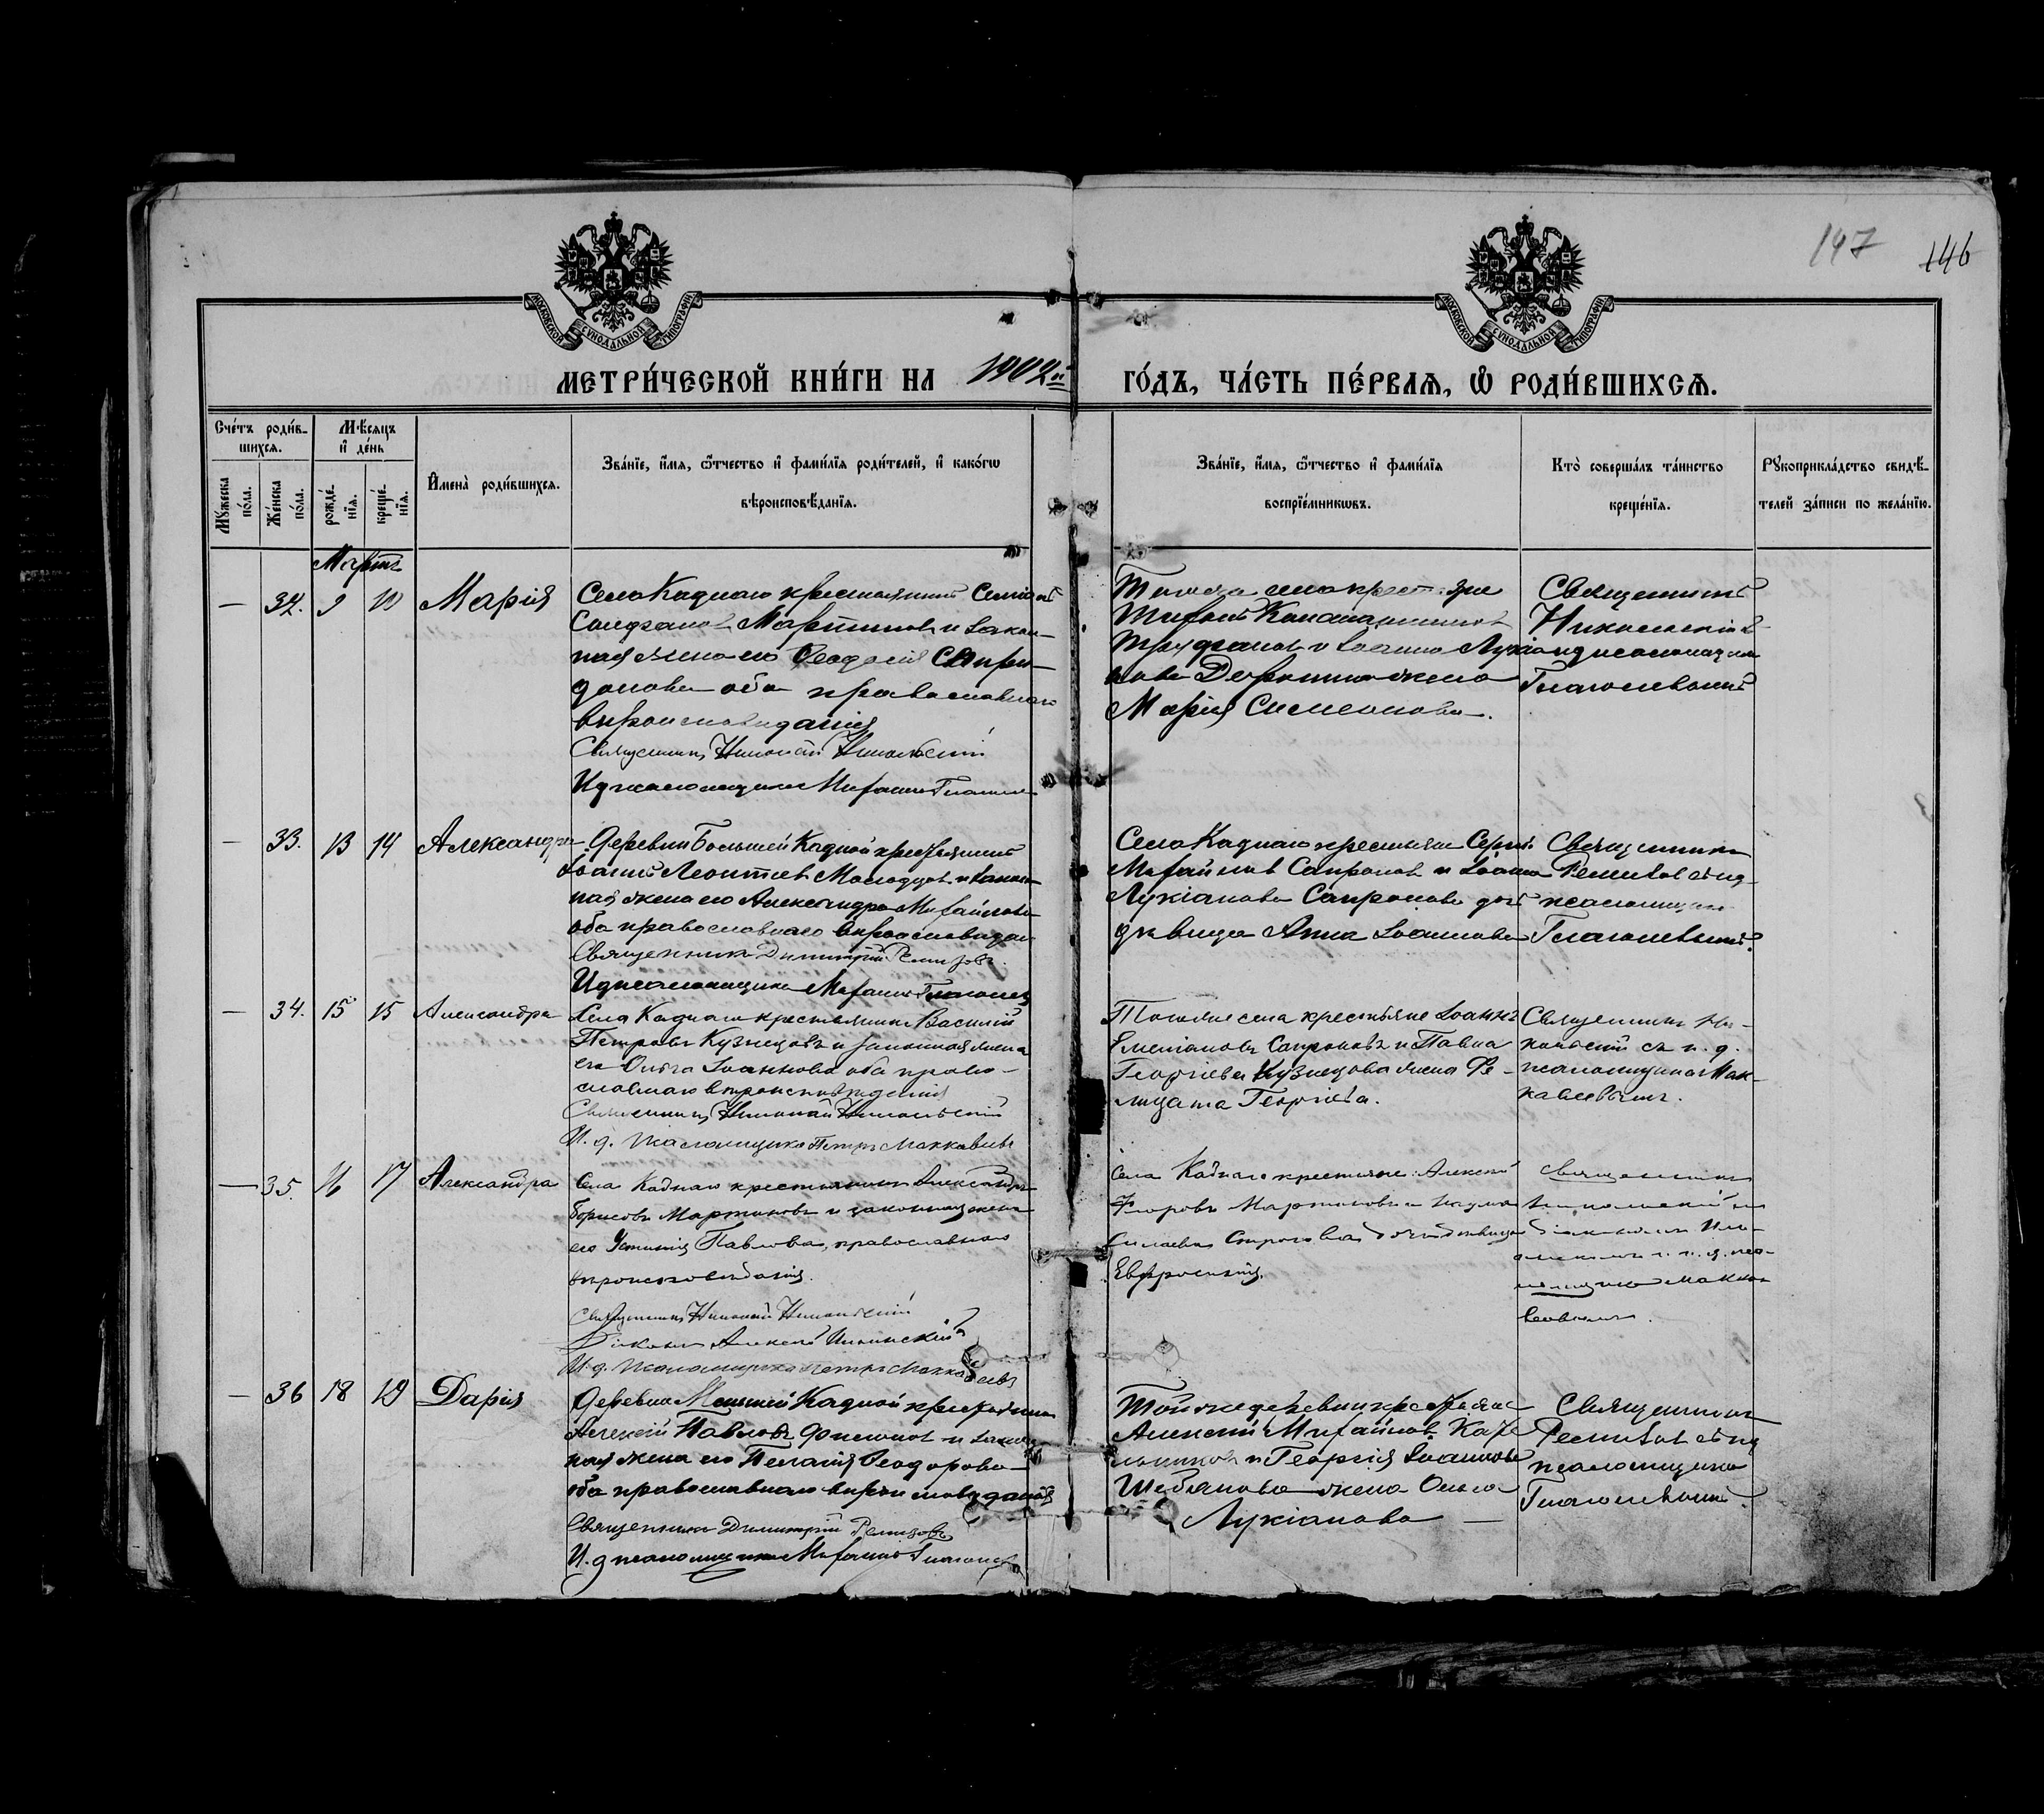 147 146
МОСКОВСКОЙ СУНОДАЛЬНОЙ ТИПОГРАФІИ
МОСКОВСКОЙ СУНОДАЛЬНОЙ ТИПОГРАФІИ
МЕТРИ́ЧЕСКОЙ КНИ́ГИ НА 1902й ГО́ДЪ, ЧА́СТЬ ПЕ́РВАЯ, Ѡ РОДИ́ВШИХСЯ.
Сче́тъ роди́в-
шихся.
Му́жеска по́ла.
Же́нска по́ла.
Мѣ́сяцъ
и де́нь
рожде́-
нїя.
креще́-
нїя.
Имена̀ роди́вшихся.
Зва́нїе, и́мя, ѻ́тчество и фами́лїя роди́телей, и како́гѡ
вѣроисповѣ́данїя.
Зва́нїе, и́мя, ѻ́тчество и фами́лїя
воспрїе́мникѡвъ.
Кто̀ соверша́лъ та́инство
креще́нїя.
Рꙋкоприкла́дство свидѣ́-
телей за́писи по жела́нїю.
Мартъ
— 32. 9 10 Марія
Села Каднаго крестьянинъ
Мартиновъ и закон-
ная жена его Ѳеодосія Спири-
донова оба православнаго
вѣроисповѣданія
Священникъ Николай Никольскій
И д псаломщика Глаголевъ
Того же села крест-яне
и Іоанна Лукіа-
нова жена
Марія Симеонова.
Священникъ
Никольскій
съ и д псаломщика
Глаголевымъ
— 33. 13 14 Александра
Деревни Большей Кадной крестьянинъ
Іоаннъ Леонтіевъ Молодцовъ и закон-
ная жена его Александра Михайлова
оба православнаго вѣроисповѣдан
Священникъ Димитрій Ремизовъ.
И д псаломщика Глаголевъ
Села Каднаго крестьяне Сергій
Михайловъ Сапроновъ и Іоанна
Лукіанова Сапронова дочь
дѣвица Анна Іоаннова
Священникъ
Ремизовъ съ и д
псаломщика
Глаголевымъ.
— 34. 15 15 Александра
Села Каднаго крестьянинъ Василій
Петровъ Кузнецовъ и законная жена
его Ольга Іоаннова оба право-
славнаго вѣроисповѣданія
Священникъ Николай Никольскій
И. д. псаломщика Петръ Маккавеевъ
Того же села крестьяне Іоаннъ
Емеліановъ Сапроновъ и Павла
Георгіева Кузнецова жена Фе-
лицата Георгіева.
Священникъ Ни-
кольскій съ и. д.
псаломщика Мак-
кавеевымъ.
— 35. 16 17 Александра
Села Каднаго крестьянинъ Александръ
Борисовъ Мартиновъ и законная жена
его Устинія Павлова, православнаго
вѣроисповѣданія.
Священникъ Николай Никольскій
Діаконъ Алексей Ильинскій
И. д. псаломщика Петръ Маккавеевъ
Села Каднаго крестьяне: Алексей
Мартиновъ и
дочь дѣвица
Евфросинія.
Священникъ
Никольскій съ
діакономъ Иль-
инскимъ и и. д. пса-
ломщика Макка-
веевымъ.
— 36 18 19 Дарія
Деревни Меньшей Кадной крестьянинъ
Алексій Павловъ Филиновъ и закон-
ная жена его Пелагія Ѳеодорова
оба православнаго вѣроисповѣданія
Священникъ Димитрій Ремизовъ
И. д псаломщика Глаголевъ
Той же деревни крестьяне
Алексій Михайловъ
и Георгія Іоаннова
жена Ольга
Лукіанова —
Священникъ
Ремизовъ съ и д
псаломщика
Глаголевымъ.